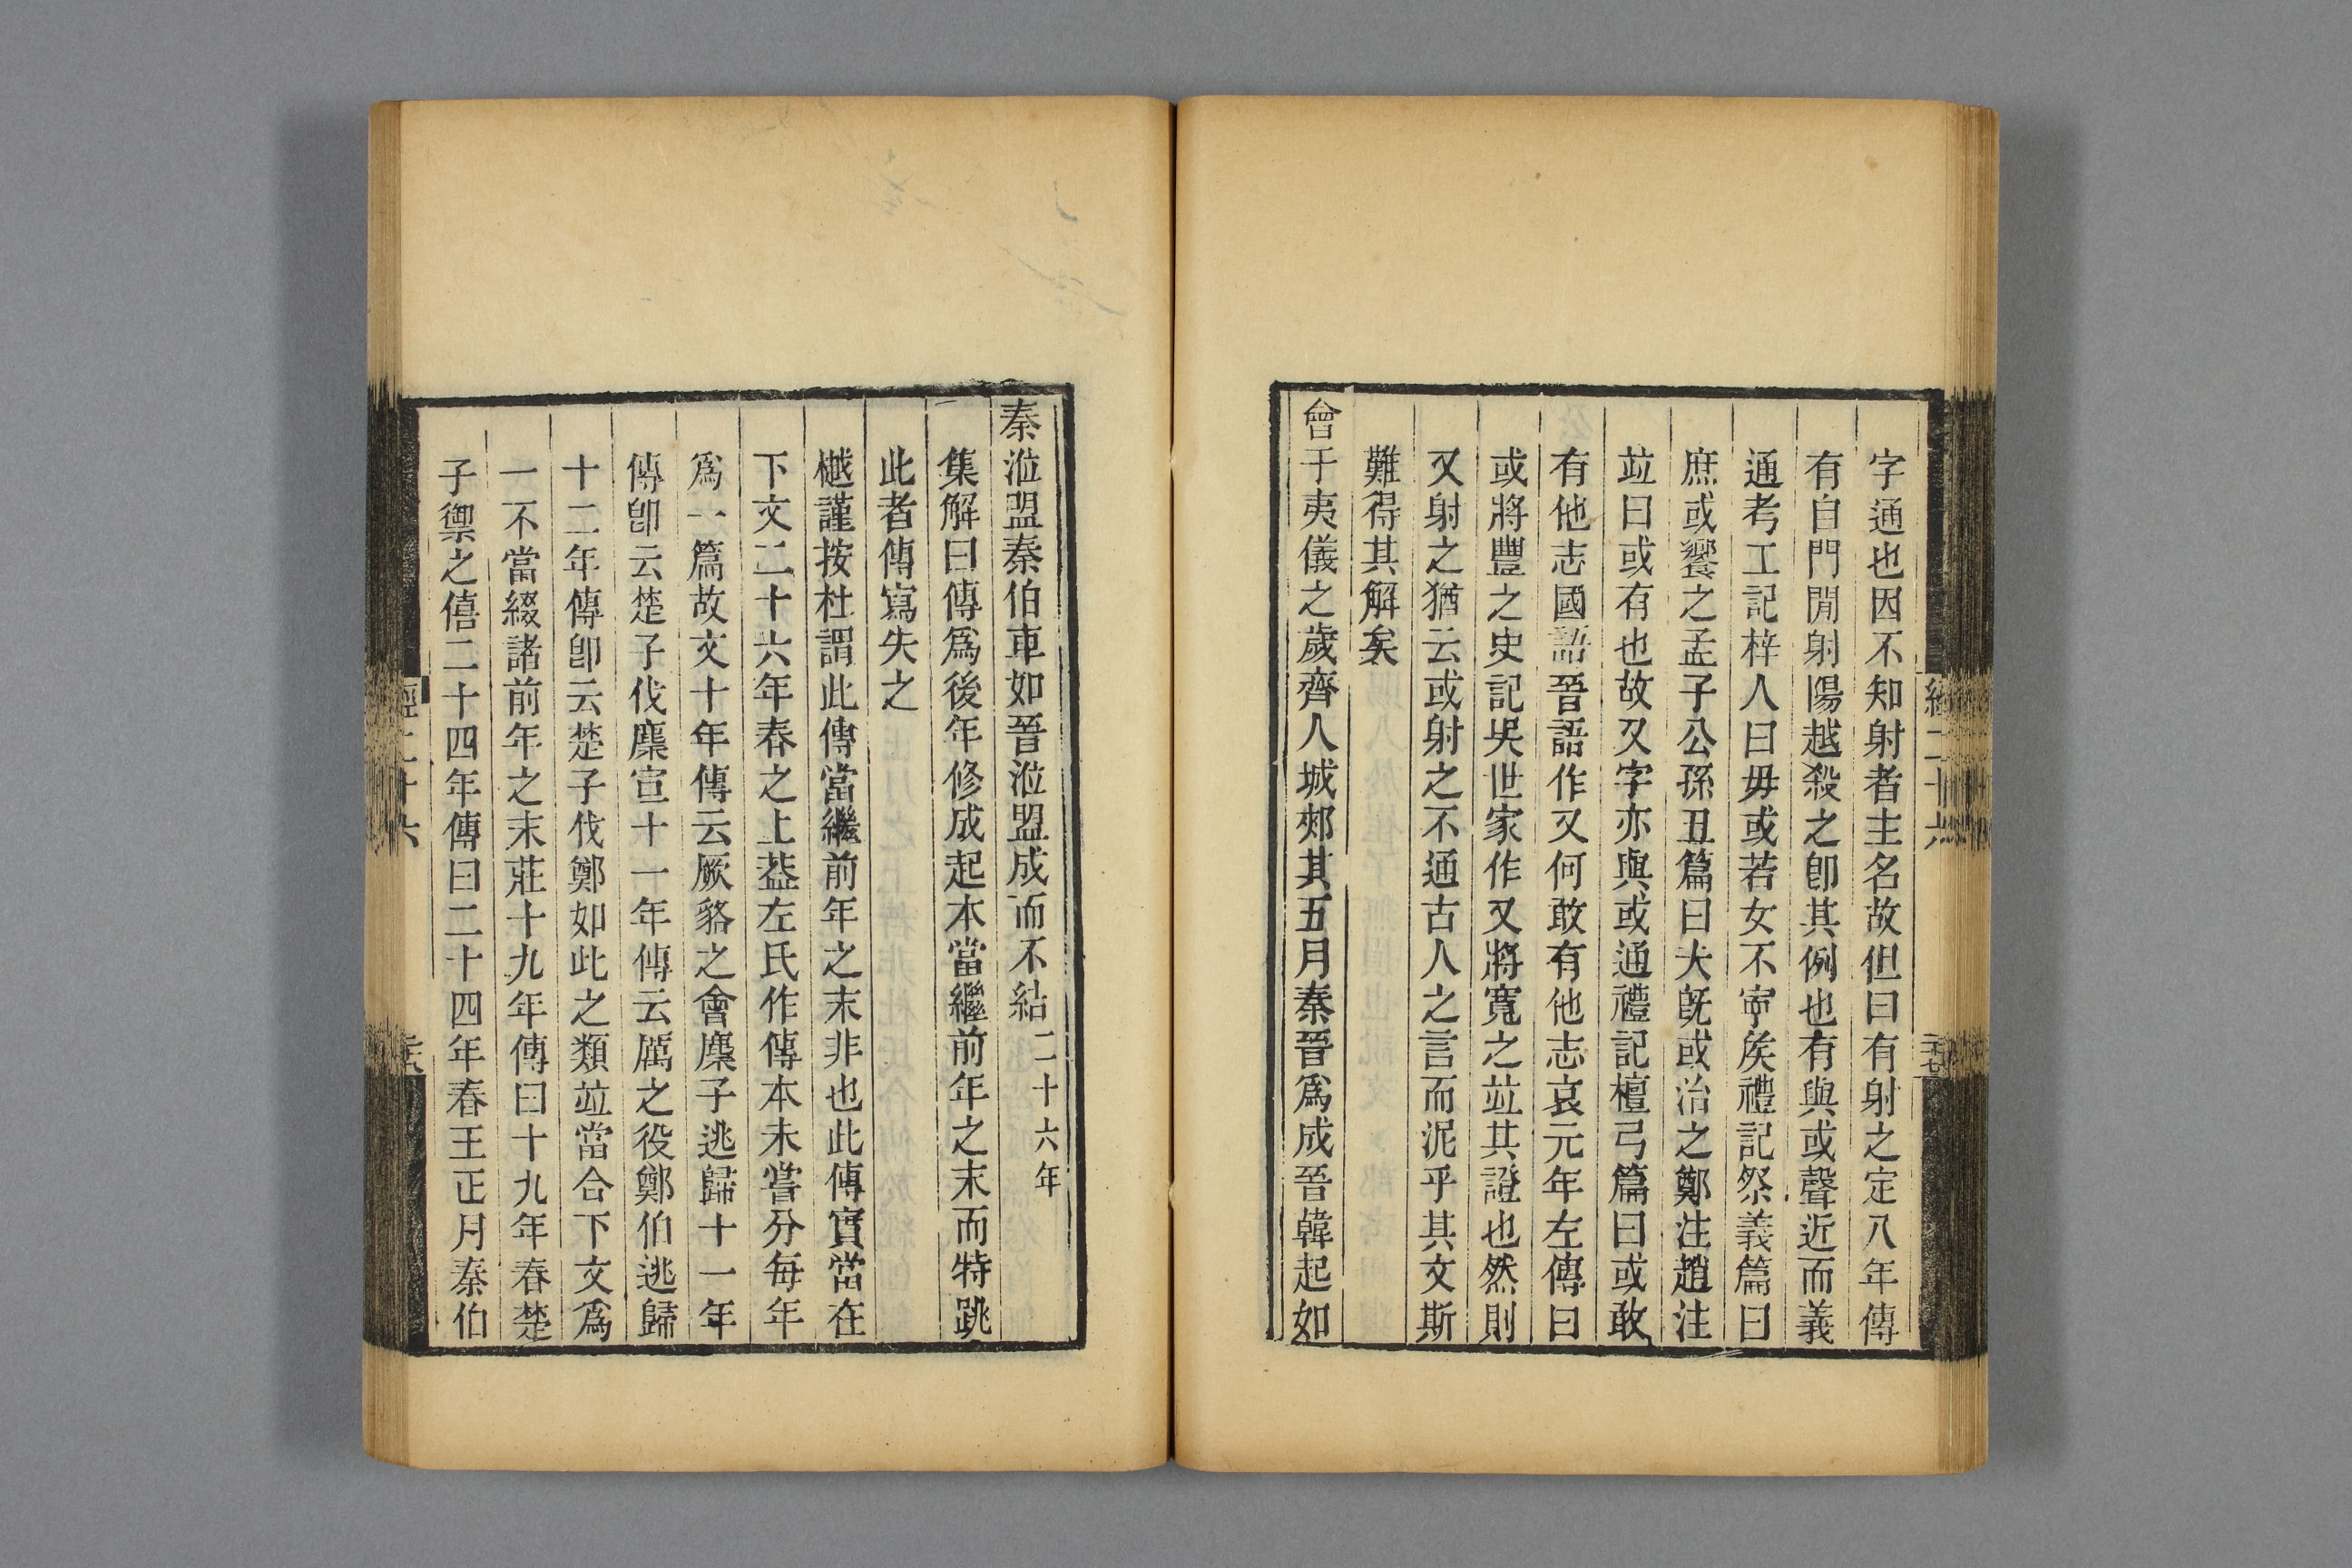 字通也因不知射者主名故但曰有射之定八年傳
有自門閒射陽越殺之卽其例也有與或聲近而義
通考工記梓人曰毋或若女不寧矦禮記祭義篇曰
庶或饗之孟子公孫丑篇曰夫旣或治之鄭注趙注
竝曰或有也故又字亦與或通禮記檀弓篇曰或敢
有他志國語晉語作又何敢有他志哀元年左傳曰
或將豐之史記吳世家作又將寬之竝其證也然則
又射之猶云或射之不通古人之言而泥乎其文斯
難得其解矣
會于夷儀之歲齊人城郟其五月秦晉爲成晉韓起如
秦涖盟秦伯車如晉涖盟成而不結二十六年
集解曰傳爲後年修成起本當繼前年之末而特跳
此者傳寫失之
樾謹按杜謂此傳當繼前年之末非也此傳實當在
下文二十六年春之上葢左氏作傳本未嘗分每年
爲一篇故文十年傳云厥貉之會麇子逃歸十一年
傳卽云楚子伐麇宣十一年傳云厲之役鄭伯逃歸
十二年傳卽云楚子伐鄭如此之類竝當合下文爲
一不當綴諸前年之末莊十九年傳曰十九年春楚
子禦之僖二十四年傳曰二十四年春王正月秦伯
經二十六